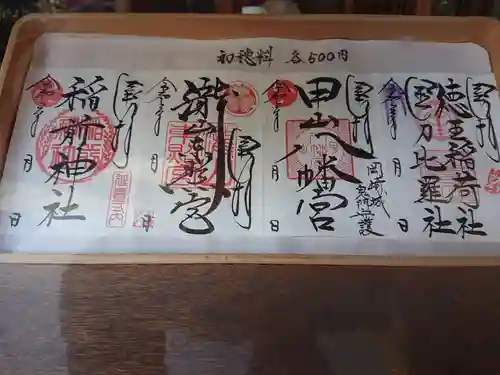 初穂料 各500円
奉拝
徳王稲荷社
金刀比羅社
令和 年 月 日
奉拝
甲山八幡宮
岡崎城
令和 年 月 日
奉拝
瀧山東照宮
令和 年 月 日
奉拝
稲前神社
令和 年 月 日